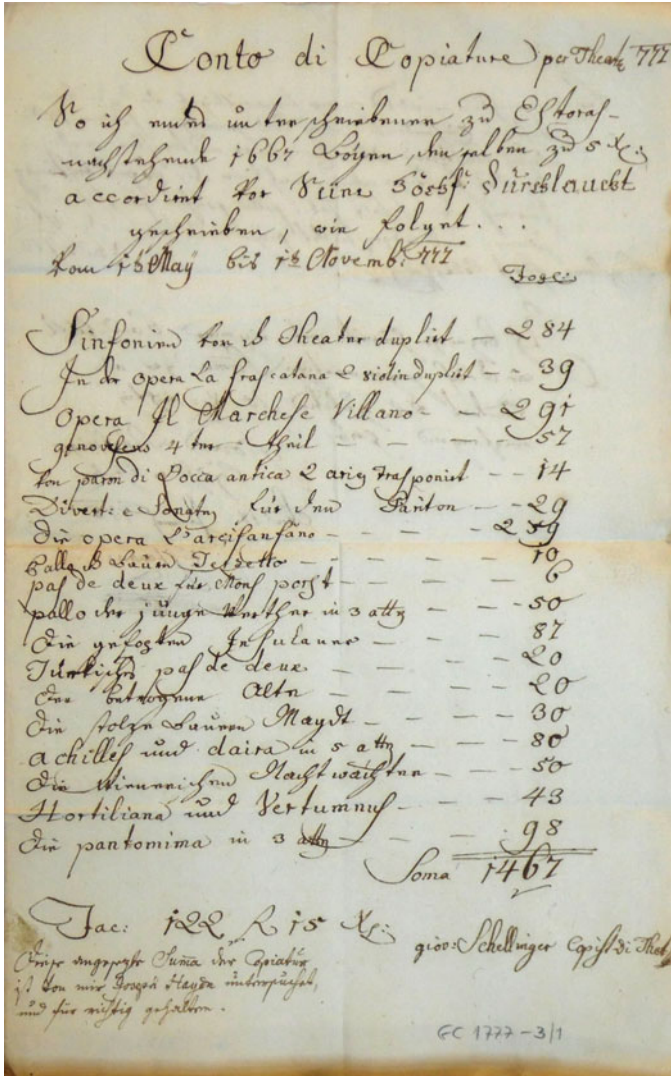 Conto di Copiature per Theatr 777
So ich endes unterschriebener zu Estoras-
nachstehende 1467 Bögen, denselben zu 5 Xr:
accordirt vor Seine Hochf: Durchlaucht
geschrieben, wie folget . . .
Vom 1ts May bis 1ts Novemb: 777
Sinfonien von Theater duplirt — 284
In der Opera La frascatana 2 violin duplirt — — 39
Opera Il Marchese Villano — — 291
genovefens 4ter theil — — — — 57
von paron di Bocca antica 2 arien trasponirt — — 14
Divert: e Sonaten für den Pariton — — 29
Die opera L'arcifanfano — — — 259
Ballo Bauern Terzetto — — — — 10
pas de deux für Mons — — — — 6
pallo der junge Werther in 3 atten — — 50
Die gefopten Insulaner — — — 87
Türkisches pas de deux — — — — 20
Der betrogene Alte — — — — 20
Die stolze Bauern Maydt — — — — 30
achilles und daira in 5 atten — — — 80
Die Nachtwächter — — — 50
Hortiliana und Vertumnus — — — 43
Die pantomima in 3 atten — — — 98
Soma 1467
Fac: 122 f 15 Xr:
giov: Schellinger Copist di Theat
Diese angesezte Summa der Copiatur
ist von mir Joseph Haydn untersuchet,
und für richtig gehalten.
GC 1777-3/1